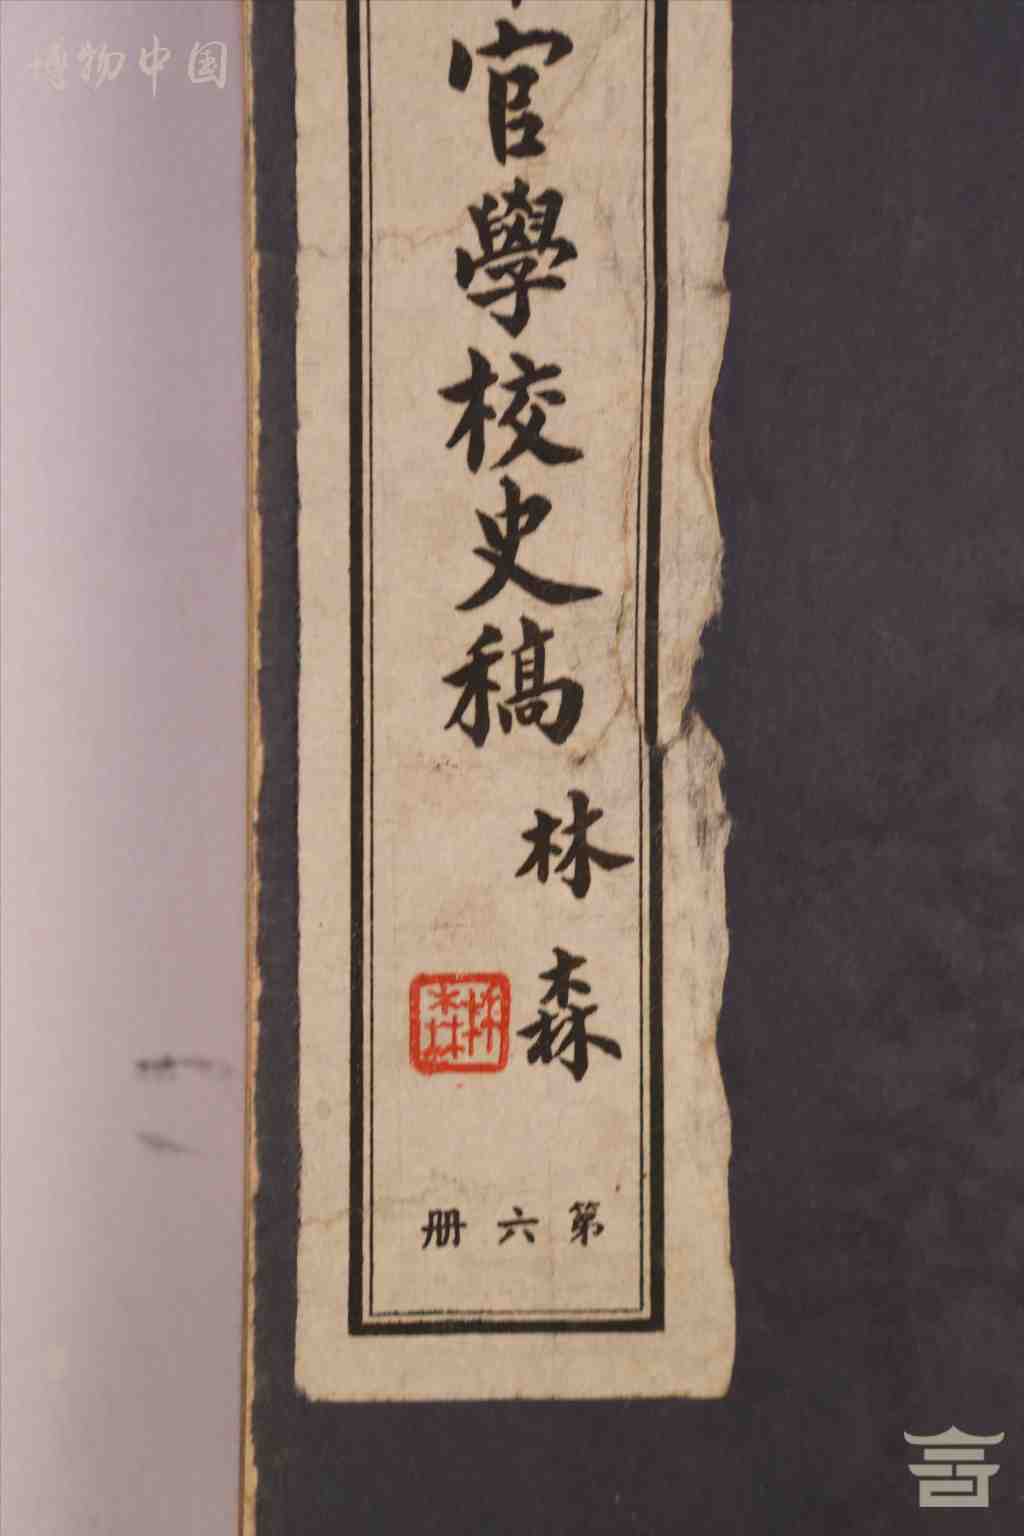 博物中国
官學校史稿
林森
林森
第六册